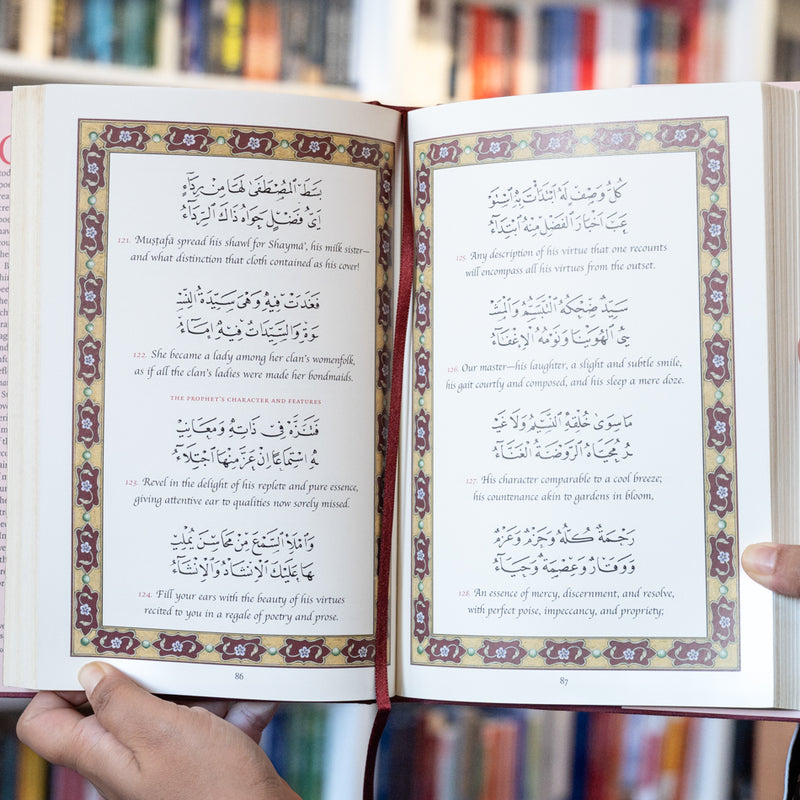 بَسَطَ ٱلْمُصْطَفَى لَهَا مِنْ رِدَاءٍ
أَيُّ فَضْلٍ حَوَاهُ ذَاكَ ٱلرِّدَاءُ
121. Muṣṭafā spread his shawl for Shaymāʾ, his milk sister—
and what distinction that cloth contained as his cover!
فَغَدَتْ فِيهِ وَهْيَ سَيِّدَةُ ٱلنِّسْـ
ـوَةِ وَٱلسَّيِّدَاتُ فِيهِ إِمَاءُ
122. She became a lady among her clan's womenfolk,
as if all the clan's ladies were made her bondmaids.
THE PROPHET'S CHARACTER AND FEATURES
فَتَنَزَّهْ فِي ذَاتِهِ وَمَعَانِيـ
ـهِ ٱسْتِمَاعًا إِنْ عَزَّ مِنْهَا ٱجْتِلَاءُ
123. Revel in the delight of his replete and pure essence,
giving attentive ear to qualities now sorely missed.
وَٱمْلَإِ ٱلسَّمْعَ مِنْ مَحَاسِنَ يُمْلِيـ
ـهَا عَلَيْكَ ٱلْإِنْشَادُ وَٱلْإِنْشَاءُ
124. Fill your ears with the beauty of his virtues
recited to you in a regale of poetry and prose.
86
كُلُّ وَصْفٍ لَهُ ٱبْتَدَأْتَ بِهِ ٱسْتَوْ
عَبَ أَخْبَارَ ٱلْفَضْلِ مِنْهُ ٱبْتِدَاءُ
125. Any description of his virtue that one recounts
will encompass all his virtues from the outset.
سَيِّدٌ ضِحْكُهُ ٱلتَّبَسُّمُ وَٱلْمَشْـ
ـيُ ٱلْهُوَيْنَا وَنَوْمُهُ ٱلْإِغْفَاءُ
126. Our master—his laughter, a slight and subtle smile,
his gait courtly and composed, and his sleep a mere doze.
مَا سِوَى خُلْقِهِ ٱلنَّسِيمُ وَلَا غَيْـ
ـرُ مُحَيَّاهُ ٱلرَّوْضَةُ ٱلْغَنَّاءُ
127. His character comparable to a cool breeze;
his countenance akin to gardens in bloom,
رَحْمَةٌ كُلُّهُ وَحَزْمٌ وَعَزْمٌ
وَوَقَارٌ وَعِصْمَةٌ وَحَيَاءُ
128. An essence of mercy, discernment, and resolve,
with perfect poise, impeccancy, and propriety;
87